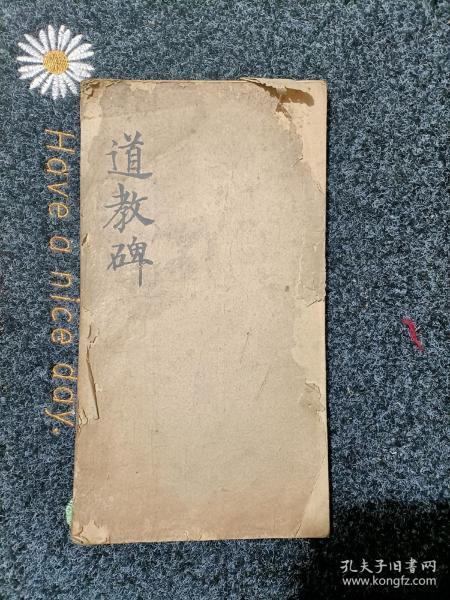 道教碑
Have a nice day.
孔夫子旧书网
www.kongfz.com